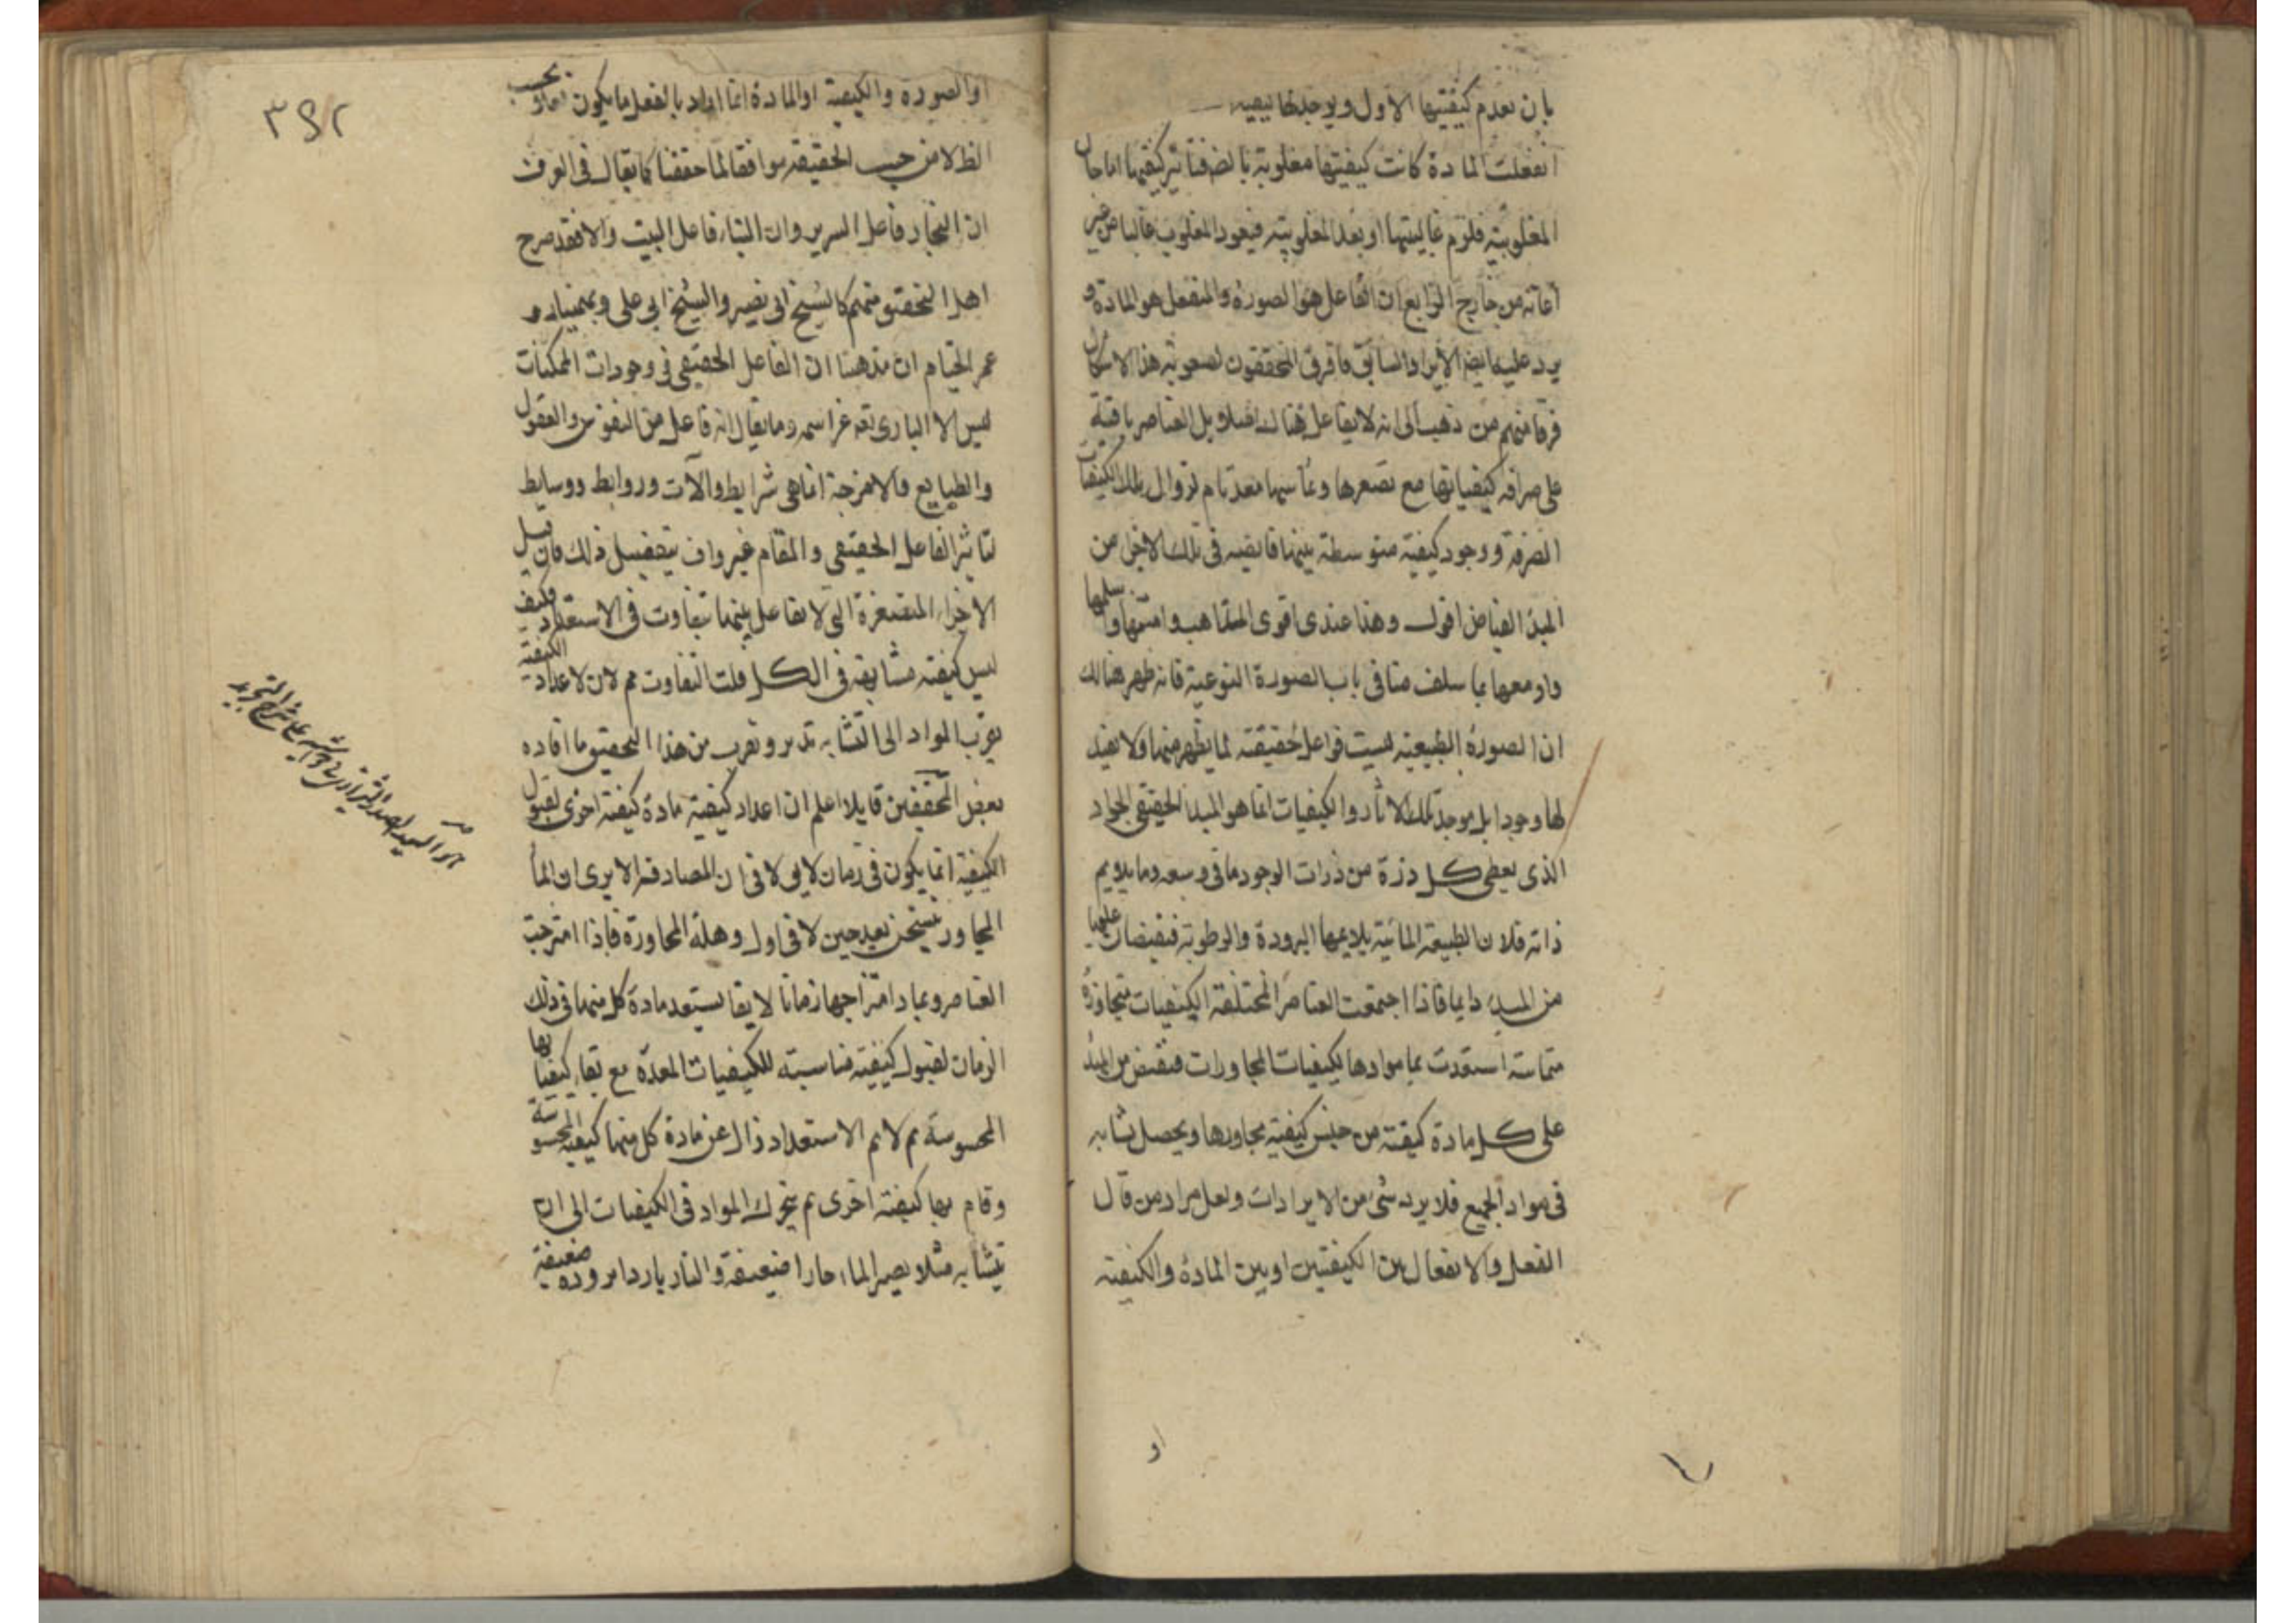 بان تعدم كيفيتها الاول ويوجد
انفعلت المادة كانت كيفيتها مغلوبة بالضد فتاثير كيفيتها اما حال
المغلوبية فلزم غالبيتها او بعد المغلوبية فيعود المغلوب غالبا من غير
اعانة من خارج الرابع ان الفاعل هو الصورة والمنفعل هو المادة و
يرد عليه ايضا الايراد السابق فافترق المحققون لصعوبة هذا الاشكال
فرقا فمنهم من ذهب الى انه لا يفاعل هناك اصلا بل العناصر باقية
على صرافة كيفياتها مع تصغرها وتماسها معد تام لزوال تلك الكيفيات
الصرفة ووجود كيفية متوسطة بينها فايضة في تلك الاجزاء من
المبدء الفياض اقول وهذا عندي اقوى المذاهب وامتنها واسلمها
واومعها بما سلف منا في باب الصورة النوعية فانه ظهر هنالك
ان الصورة الطبيعية ليست فواعل حقيقة لما يظهر منها ولا يفيد
لها وجودا بل موجد تلك الاثار والكيفيات انما هو المبدء الحقيقي الجواد
الذي يعطي كل ذرة من ذرات الوجود ما في وسعه وما يلايم
ذاته فلان الطبيعة المائية يلايمها البرودة والرطوبة فتفيضان عليها
من المبدء دايما فاذا اجتمعت العناصر المختلفة الكيفيات متجاوزة
متماسة استعدت بما موادها لكيفيات المجاورات فتفيض من المبدء
على كل مادة كيفية من جنس كيفية مجاورها ويحصل تشابه
في مواد الجميع فلا يرد شئ من الايرادات ولعل مراد من قال
الفعل والانفعال بين الكيفيتين او بين المادة والكيفية
او
٣٩٢
او الصورة والكيفية او المادة انما اراد بالفعل ما يكون بحسب
الظ لا من حيث الحقيقة موافقا لما حققنا كما يقال في العرف
ان النجار فاعل السرير وان البناء فاعل البيت والا فقد صرح
اهل التحقيق منهم كالشيخ ابي نصير والشيخ ابي علي وبهمنيار و
عمر الخيام ان مذهبنا ان الفاعل الحقيقي في وجودات الممكنات
ليس الا الباري تعه عز اسمه وما يقال انه فاعل من النفوس والعقول
والطبايع والامزجة انما هي شرايط والات وروابط ووسايط
لتاثير الفاعل الحقيقي والمقام غير واف بتفصيل ذلك فان قيل
الاجزاء المتصغرة التي لا تفاعل بينها تتفاوت في الاستعداد فكيف
ليس كيفية متشابهة في الكل قلت التفاوت مم لان لاعداد الكيفية
يقرب المواد الى التشابه تدبر وتقرب من هذا التحقيق ما افاده
بعض المحققين قايلا اعلم ان اعداد كيفية مادة كيفية اخرى لقبول
الكيفية انما يكون في زمان لا في ان المصادفة الا يرى ان الماء
المجاور يتسخن بعد حين لا في اول وهلة المجاورة فاذا امتزجت
العناصر وبما دام امتزاجها زمانا لا يقا يستعد مادة كل منها في ذلك
الزمان لقبول كيفية مناسبة للكيفيات المعدة مع بقاء كيفياتها
المحسوسة ثم لاتم الاستعداد زال عن مادة كل منها كيفية المحسوسة
وقام بها كيفية اخرى ثم يتحرك المواد في الكيفيات الى ان
يتشابه مثلا يصير الماء حارا ضعيفة والنار باردا برودة ضعيفة
هو السيد الصدر الشيرازي